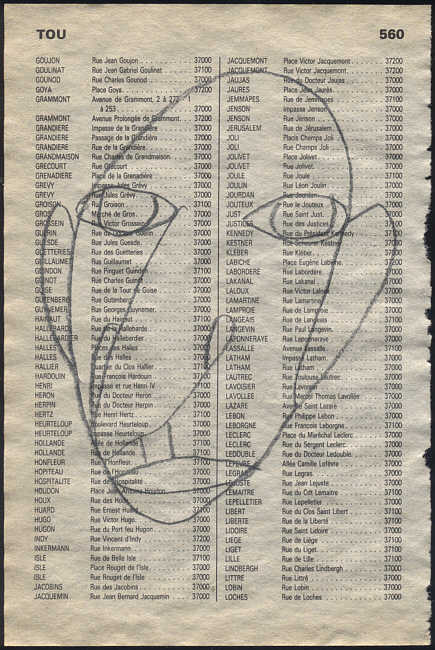 TOU 560
GOUJON Rue Jean Goujon 37000
GOULINAT Rue Jean Gabriel Goulinat 37100
GOUNOD Rue Charles Gounod 37000
GOYA Place Goya 37200
GRAMMONT Avenue de Grammont, 2 à 272 - 1
à 253 37000
GRAMMONT Avenue Prolongée de Grammont 37200
GRANDIERE Impasse de la Grandière 37000
GRANDIERE Passage de la Grandière 37000
GRANDIERE Rue de la Grandière 37000
GRANDMAISON Rue Charles de Grandmaison 37000
GRECOURT Rue Grécourt 37000
GRENADIERE Place de la Grenadière 37100
GREVY Impasse Jules Grévy 37000
GREVY Rue Jules Grévy 37000
GROISON Rue Groison 37100
Marché de Gros 37000
GROSSEIN Rue Victor Grossein 37000
GUERIN 37000
GUESDE Rue Jules Guesde 37000
GUETTERIES Rue des Guetteries 37000
GUILLAUMET Rue Guillaumet 37000
GUINDON Rue Pinguet Guindon 37100
GUINOT Rue Charles Guinot 37000
GUISE Rue de la Tour de Guise 37000
GUTENBERG Rue Gutenberg 37000
GUYNEMER Rue Georges Guynemer 37000
HAINAUT Rue du Hainaut 37100
HALLEBARDE Rue de la Hallebarde 37000
HALLEBARDIER Rue du Hallebardier 37000
HALLES Place des Halles 37000
HALLES Rue des Halles 37000
HALLIER Quartier du Clos Hallier 37100
HARDOUIN Rue François Hardouin 37100
HENRI Impasse et rue Henri IV 37100
HERON Rue du Docteur Heron 37000
HERPIN Rue du Docteur Herpin 37000
HERTZ Rue Henri Hertz 37100
HEURTELOUP Boulevard Heurteloup 37000
HEURTELOUP Impasse Heurteloup 37000
HOLLANDE Allée de Hollande 37100
HOLLANDE Rue de Hollande 37100
HONFLEUR Rue d'Honfleur 37100
HOPITEAU Rue de l'Hopiteau 37000
HOSPITALITE Rue de l'Hospitalité 37000
HOUDON Place Jean Antoine Houdon 37000
HOUX Rue des Houx 37000
HUARD Rue Ernest Huard 37100
HUGO Rue Victor Hugo 37000
HUGON Rue du Port feu Hugon 37000
INDY Rue Vincent d'Indy 37200
INKERMANN Rue Inkermann 37000
ISLE Rue de Belle Isle 37100
ISLE Place Rouget de l'Isle 37000
ISLE Rue Rouget de l'Isle 37000
JACOBINS Rue des Jacobins 37000
JACQUEMIN Rue Jean Bernard Jacquemin 37000
JACQUEMONT Place Victor Jacquemont 37200
JACQUEMONT Rue Victor Jacquemont 37200
JAUJAS Rue du Docteur Jaujas 37000
JAURES Place Jean Jaurès 37000
JEMMAPES Rue de Jemmapes 37100
JENSON Impasse Jenson 37000
JENSON Rue Jenson 37000
JERUSALEM Rue de Jérusalem 37000
JOLI Placis Champs Joli 37000
JOLI Rue Champs Joli 37000
JOLIVET Place Jolivet 37000
JOLIVET Rue Jolivet 37000
JOULE Rue Joule 37100
JOULIN Rue Léon Joulin 37000
JOURDAN Rue Jourdan 37000
JOUTEUX Rue le Jouteux 37000
JUST Rue Saint Just 37000
JUSTICES Rue des Justices 37000
KENNEDY Rue du Président Kennedy 37100
KESTNER Rue Scheurer Kestner 37000
KLEBER Rue Kléber 37000
LABICHE Place Eugène Labiche 37200
LABORDERE Rue Labordère 37000
LAKANAL Rue Lakanal 37000
LALOUX Rue Victor Laloux 37000
LAMARTINE Rue Lamartine 37000
LAMPROIE Rue de Lamproie 37000
LANGEAIS Rue de Langeais 37000
LANGEVIN Rue Paul Langevin 37000
LAPONNERAYE Rue Laponneraye 37000
LASSALLE Avenue Lassalle 37100
LATHAM Impasse Latham 37000
LATHAM Rue Latham 37000
LAUTREC Rue Toulouse Lautrec 37000
LAVOISIER Rue Lavoisier 37000
LAVOLLEE Rue Marcel Thomas Lavollée 37000
LAZARE Avenue Saint Lazare 37000
LEBON Rue Philippe Lebon 37000
LEBORGNE Rue François Leborgne 37000
LECLERC Place du Maréchal Leclerc 37000
LECLERC Rue du Sergent Leclerc 37000
LEDDOUBLE Rue du Docteur Ledouble 37000
LEFEVRE Allée Camille Lefèvre 37000
LEGRAS Rue Legras 37000
LEJUSTE Rue Jean Lejuste 37000
LEMAITRE Rue du Cdt Lemaitre 37100
LEPELLETIER Rue Lepelletier 37000
LIBERT Rue du Clos Saint Libert 37100
LIBERTE Rue de la Liberté 37100
LIDOIRE Rue Saint Lidoire 37000
LIEGE Rue de Liège 37100
LIGET Rue du Liget 37100
LILLE Rue de Lille 37100
LINDBERGH Rue Charles Lindbergh 37000
LITTRE Rue Littré 37000
LOBIN Rue Lobin 37000
LOCHES Rue de Loches 37000